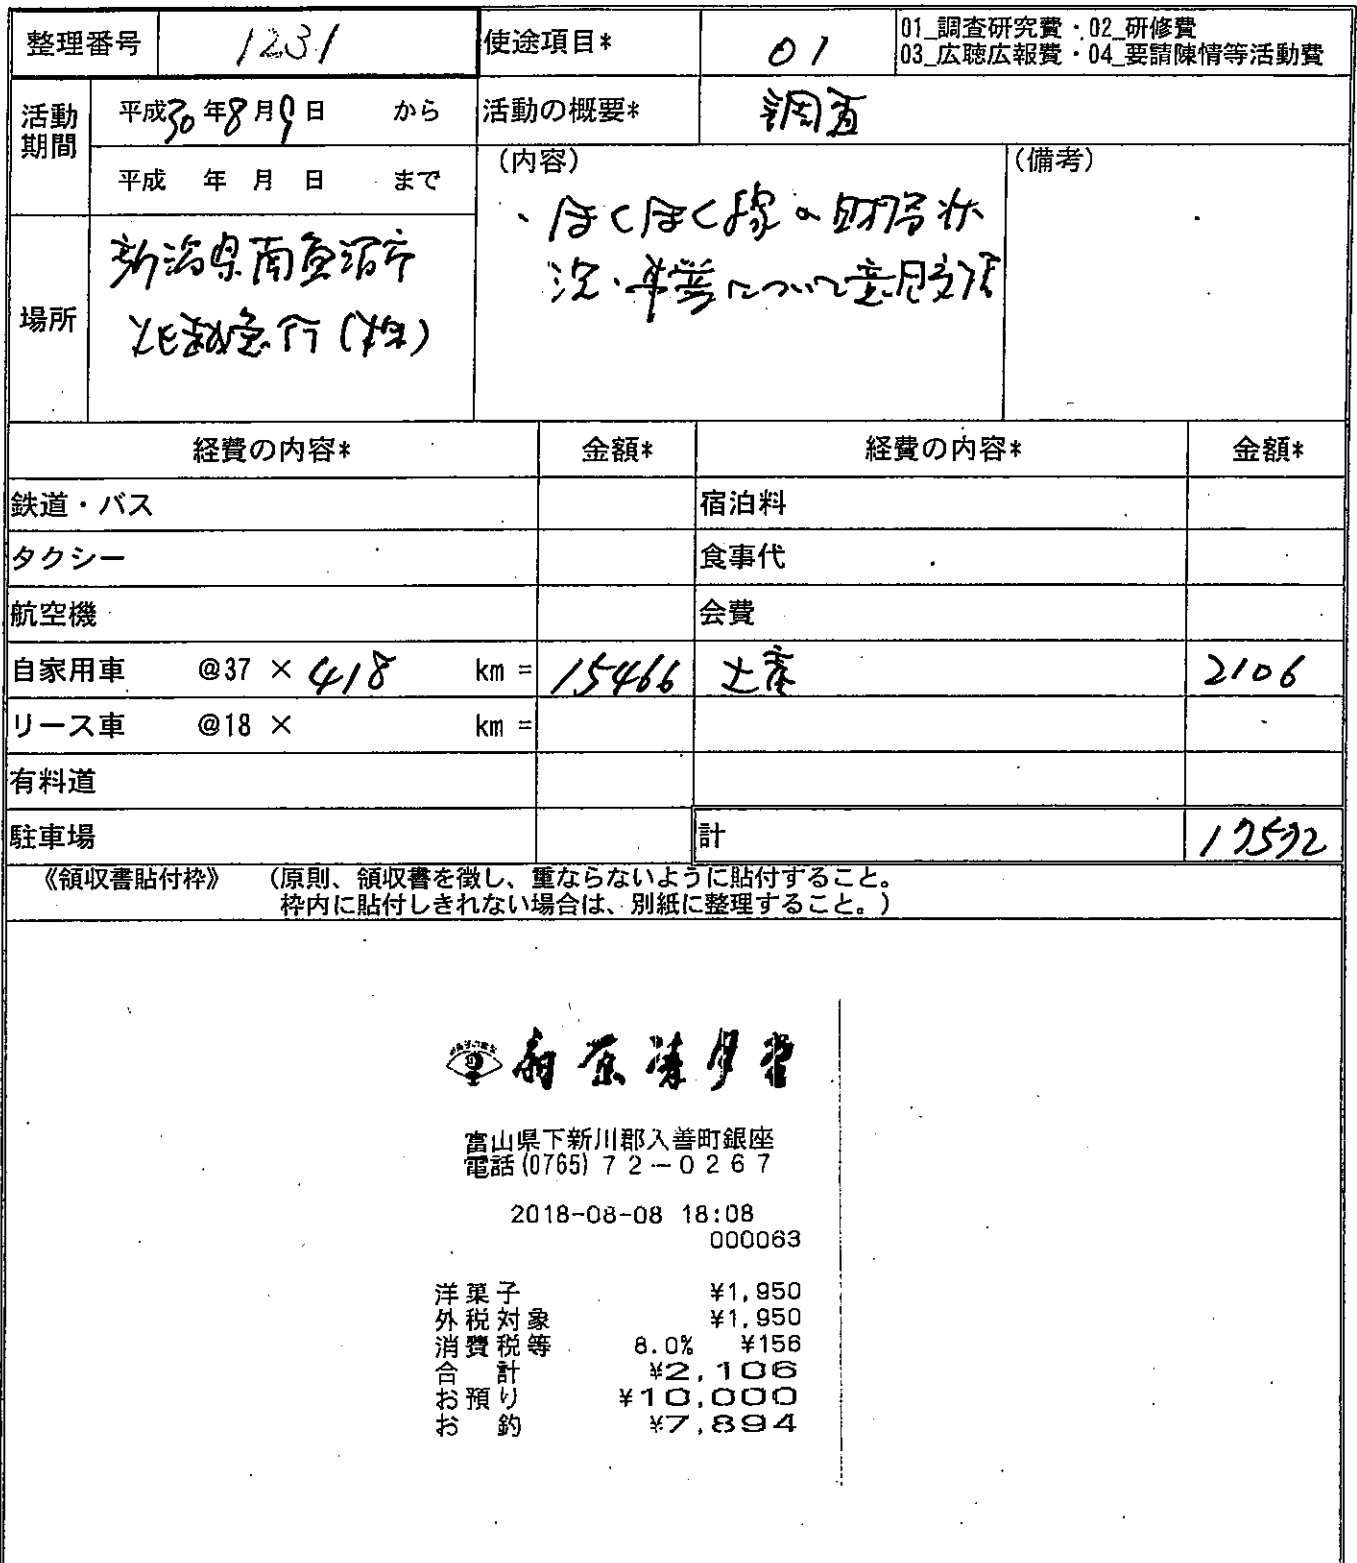 整理番号 1231 使途項目* 01 01_調査研究費・02_研修費
03_広聴広報費・04_要請陳情等活動費
活動期間 平成30年8月9日 から 活動の概要* 調査
平成 年 月 日 まで (内容) (備考)
・ほくほく線の財務状
況・営業について意見交換
場所 新潟県南魚沼市
北越急行(株)
経費の内容* 金額* 経費の内容* 金額*
鉄道・バス 宿泊料
タクシー 食事代
航空機 会費
自家用車 @37 × 418 km = 15466 土産 2106
リース車 @18 × km =
有料道
駐車場 計 17572
《領収書貼付枠》 (原則、領収書を徴し、重ならないように貼付すること。
枠内に貼付しきれない場合は、別紙に整理すること。)
清月堂
富山県下新川郡入善町銀座
電話(0765)72-0267
2018-08-08 18:08
000063
洋菓子 ¥1,950
外税対象 ¥1,950
消費税等 8.0% ¥156
合 計 ¥2,106
お預り ¥10,000
お 釣 ¥7,894